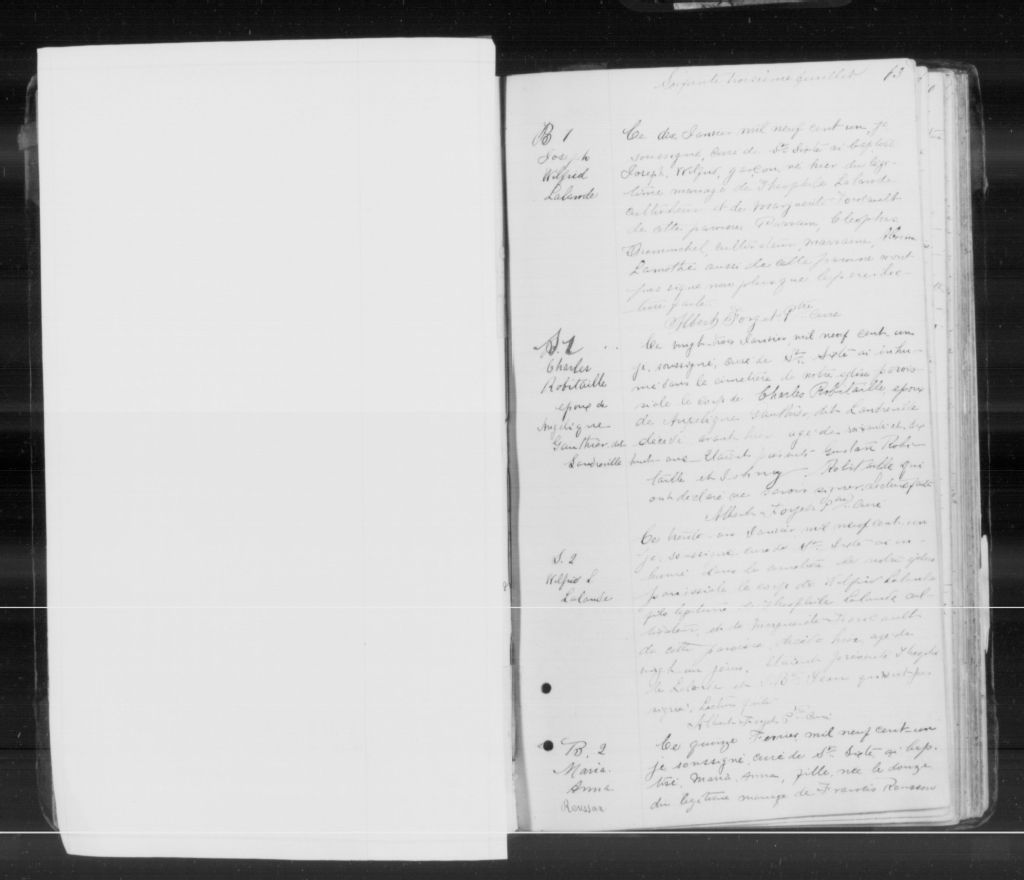 Soixante troisième feuillet 63
B 1
Joseph
Wilfred
Lalande
Ce dix Janvier mil neuf cent un, je
soussigné, curé de Ste Sixte ai baptisé
Joseph, Wilfrid, garçon, né hier du légi-
time mariage de Théophile Lalande
cultivateur et de Marguerite
de cette paroisse Parrain, Cléophas
cultivateur, marraine,
Lamothe aussi de cette paroisse n'ont
pas signé non plus que le père lec-
ture faite.
Albert Forget Ptre Curé
S. 1
Charles
Robitaille
époux de
Angélique
Gauthier dit
Landreville
Ce vingt trois Janvier mil neuf cent un
je, soussigné, curé de Ste Sixte ai inhu-
mé dans le cimetière de notre église parois-
siale le corps de Charles Robitaille, époux
de Angélique Gauthier, dit Landreville
décédé avant hier agé de soixante et dix
huit ans. Etaient présents Gustave Robi-
taille et Johnny Robitaille qui
ont déclaré ne savoir signer. Lecture faite
Albert Forget Ptre Curé
S. 2
Wilfrid
Lalande
Ce trente un Janvier mil neuf cent un
je, soussigné curé de Ste Sixte ai in-
humé dans le cimetière de notre église
paroissiale le corps de Wilfrid Lalande
fils légitime de Théophile Lalande cul-
tivateur et de Marguerite
de cette paroisse, décédé hier, agé de
vingt un jours. Etaient présents
et Jean qui n'ont pas
signé. Lecture faite
Albert Forget Ptre Curé
B. 2
Maria
Anna
Rousson
Ce quinze Fevrier mil neuf cent un
je soussigné curé de Ste Sixte ai bap-
tisé, Maria Anna, fille, née le douze
du légitime mariage de Francis Rousson